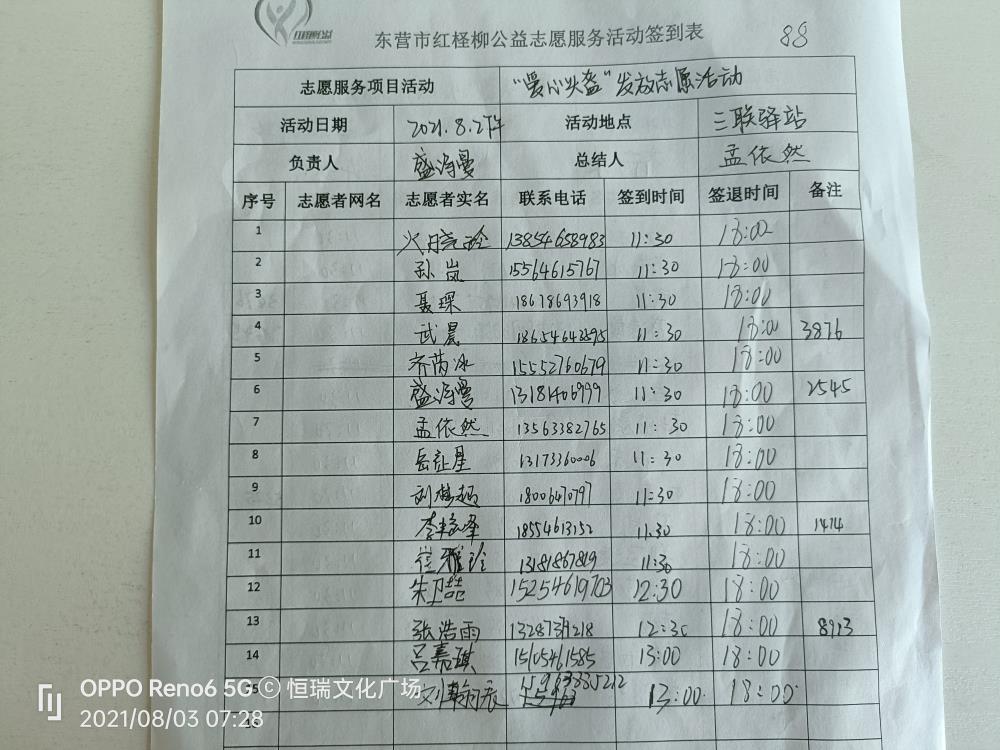 红柽柳公益
东营市红柽柳公益志愿服务活动签到表 88
志愿服务项目活动 "爱心头盔"发放志愿活动
活动日期 2021.8.2下午 活动地点 三联驿站
负责人 盛海曼 总结人 孟依然
序号 志愿者网名 志愿者实名 联系电话 签到时间 签退时间 备注
1 13854658983 11:30 18:00
2 孙岚 15564615767 11:30 18:00
3 聂琛 18678693918 11:30 18:00
4 武晨 11:30 18:00 3876
5 齐芮冰 15552760679 11:30 18:00
6 盛海曼 13181406999 11:30 18:00 2545
7 孟依然 13563382765 11:30 18:00
8 13173360006 11:30 18:00
9 18006470797 11:30 18:00
10 18554613152 11:30 18:00 1414
11 崔雅玲 13181867819 11:30 18:00
12 朱卫喆 15254619703 12:30 18:00
13 张浩雨 12:30 18:00 8913
14 吕嘉琪 15105461585 13:00 18:00
15 刘翰辰 15963385212 13:00 18:00
16
OPPO Reno6 5G © 恒瑞文化广场
2021/08/03 07:28